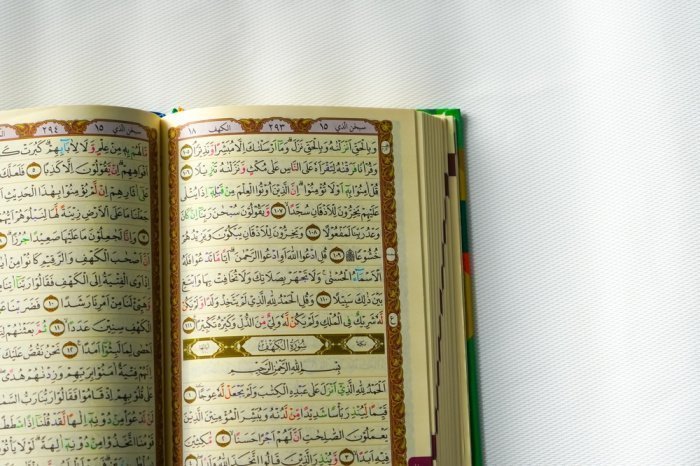 سبحن الذي ١٥ ٢٩٣ الكهف ١٨
وَبِالْحَقِّ اَنْزَلْنٰهُ وَبِالْحَقِّ نَزَلَۗ وَمَآ اَرْسَلْنٰكَ اِلَّا مُبَشِّرًا وَّنَذِيْرًاۘ ١٠٥
وَقُرْاٰنًا فَرَقْنٰهُ لِتَقْرَاَهٗ عَلَى النَّاسِ عَلٰى مُكْثٍ وَّنَزَّلْنٰهُ تَنْزِيْلًا ١٠٦
قُلْ اٰمِنُوْا بِهٖٓ اَوْ لَا تُؤْمِنُوْاۗ اِنَّ الَّذِيْنَ اُوْتُوا الْعِلْمَ مِنْ قَبْلِهٖٓ اِذَا يُتْلٰى
عَلَيْهِمْ يَخِرُّوْنَ لِلْاَذْقَانِ سُجَّدًاۙ ١٠٧ وَّيَقُوْلُوْنَ سُبْحٰنَ رَبِّنَآ اِنْ كَانَ
وَعْدُ رَبِّنَا لَمَفْعُوْلًا ١٠٨ وَيَخِرُّوْنَ لِلْاَذْقَانِ يَبْكُوْنَ وَيَزِيْدُهُمْ
خُشُوْعًا ۩ ١٠٩ قُلِ ادْعُوا اللّٰهَ اَوِ ادْعُوا الرَّحْمٰنَۗ اَيًّا مَّا تَدْعُوْا فَلَهُ
الْاَسْمَاۤءُ الْحُسْنٰىۚ وَلَا تَجْهَرْ بِصَلَاتِكَ وَلَا تُخَافِتْ بِهَا وَابْتَغِ
بَيْنَ ذٰلِكَ سَبِيْلًا ١١٠ وَقُلِ الْحَمْدُ لِلّٰهِ الَّذِيْ لَمْ يَتَّخِذْ وَلَدًا وَّلَمْ يَكُنْ
لَّهٗ شَرِيْكٌ فِى الْمُلْكِ وَلَمْ يَكُنْ لَّهٗ وَلِيٌّ مِّنَ الذُّلِّ وَكَبِّرْهُ تَكْبِيْرًا ١١١
سُوْرَةُ الْكَهْفِ
بِسْمِ اللّٰهِ الرَّحْمٰنِ الرَّحِيْمِ
اَلْحَمْدُ لِلّٰهِ الَّذِيْٓ اَنْزَلَ عَلٰى عَبْدِهِ الْكِتٰبَ وَلَمْ يَجْعَلْ لَّهٗ عِوَجًاۜ ١
قَيِّمًا لِّيُنْذِرَ بَأْسًا شَدِيْدًا مِّنْ لَّدُنْهُ وَيُبَشِّرَ الْمُؤْمِنِيْنَ الَّذِيْنَ
يَعْمَلُوْنَ الصّٰلِحٰتِ اَنَّ لَهُمْ اَجْرًا حَسَنًاۙ ٢ مَّاكِثِيْنَ
فِيْهِ اَبَدًاۙ ٣ وَّيُنْذِرَ الَّذِيْنَ قَالُوا اتَّخَذَ اللّٰهُ وَلَدًا ٤
سبحن الذي ١٥ ٢٩٤
مَا لَهُمْ بِهٖ مِنْ عِلْمٍ وَّلَا لِاٰبَاۤىِٕهِمْۗ كَبُرَتْ
اَفْوَاهِهِمْۗ اِنْ يَّقُوْلُوْنَ اِلَّا كَذِبًا ٥ فَلَعَلَّكَ
اٰثَارِهِمْ اِنْ لَّمْ يُؤْمِنُوْا بِهٰذَا الْحَدِيْثِ
جَعَلْنَا مَا عَلَى الْاَرْضِ زِيْنَةً لَّهَا لِنَبْلُوَهُمْ
وَاِنَّا لَجٰعِلُوْنَ مَا عَلَيْهَا صَعِيْدًا جُرُزًاۗ ٨
اَنَّ اَصْحٰبَ الْكَهْفِ وَالرَّقِيْمِ كَانُوْا مِنْ
اِذْ اَوَى الْفِتْيَةُ اِلَى الْكَهْفِ فَقَالُوْا رَبَّنَآ
وَّهَيِّئْ لَنَا مِنْ اَمْرِنَا رَشَدًا ١٠ فَضَرَبْنَا
الْكَهْفِ سِنِيْنَ عَدَدًاۙ ١١ ثُمَّ بَعَثْنٰهُمْ
اَحْصٰى لِمَا لَبِثُوْٓا اَمَدًا ١٢ نَحْنُ نَقُصُّ عَلَيْكَ
فِتْيَةٌ اٰمَنُوْا بِرَبِّهِمْ وَزِدْنٰهُمْ هُدًىۖ ١٣
عَلٰى قُلُوْبِهِمْ اِذْ قَامُوْا فَقَالُوْا رَبُّنَا رَبُّ
لَنْ نَّدْعُوَا۟ مِنْ دُوْنِهٖٓ اِلٰهًا لَّقَدْ قُلْنَآ اِذًا شَطَطًا